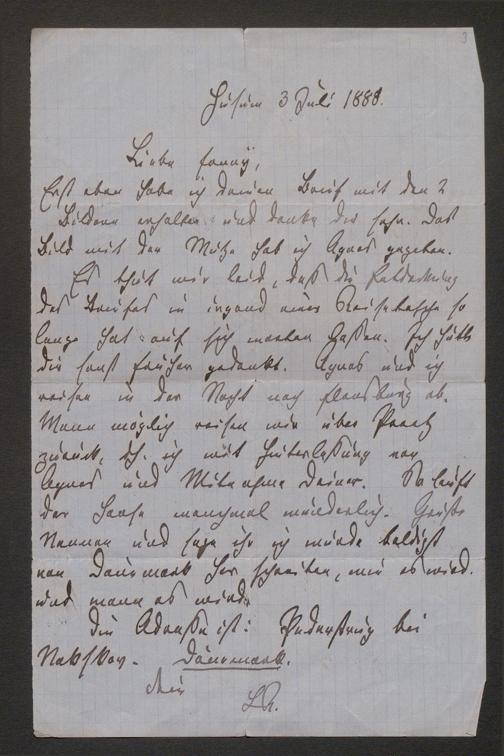 3
Husum 3 Juli 1888.
Liebe Fanny,
Erst eben habe ich deinen Brief mit den 2
Bildern erhalten und danke dir sehr. Das
Bild mit der Mütze hab ich Agnes gegeben.
Es thut mir leid, daß die Entdeckung
des Briefes in irgend einer Reisetasche so
lange hat auf sich warten lassen. Ich hätte
dir sonst früher gedankt. Agnes und ich
reisen in der Nacht nach Flensburg ab.
Wenn möglich reisen wir über Preetz
zurück, d.h. ich mit Hinterlaßung von
Agnes und Mitnahme Deiner. So läuft
der Hase manchmal wunderlich. Grüße
und sage ihr ich würde baldigst
von Dänemark her schreiben, wie es wird.
und wann es wird.
Die Adresse ist: bei
Nakskov. Dänemark.
Dein